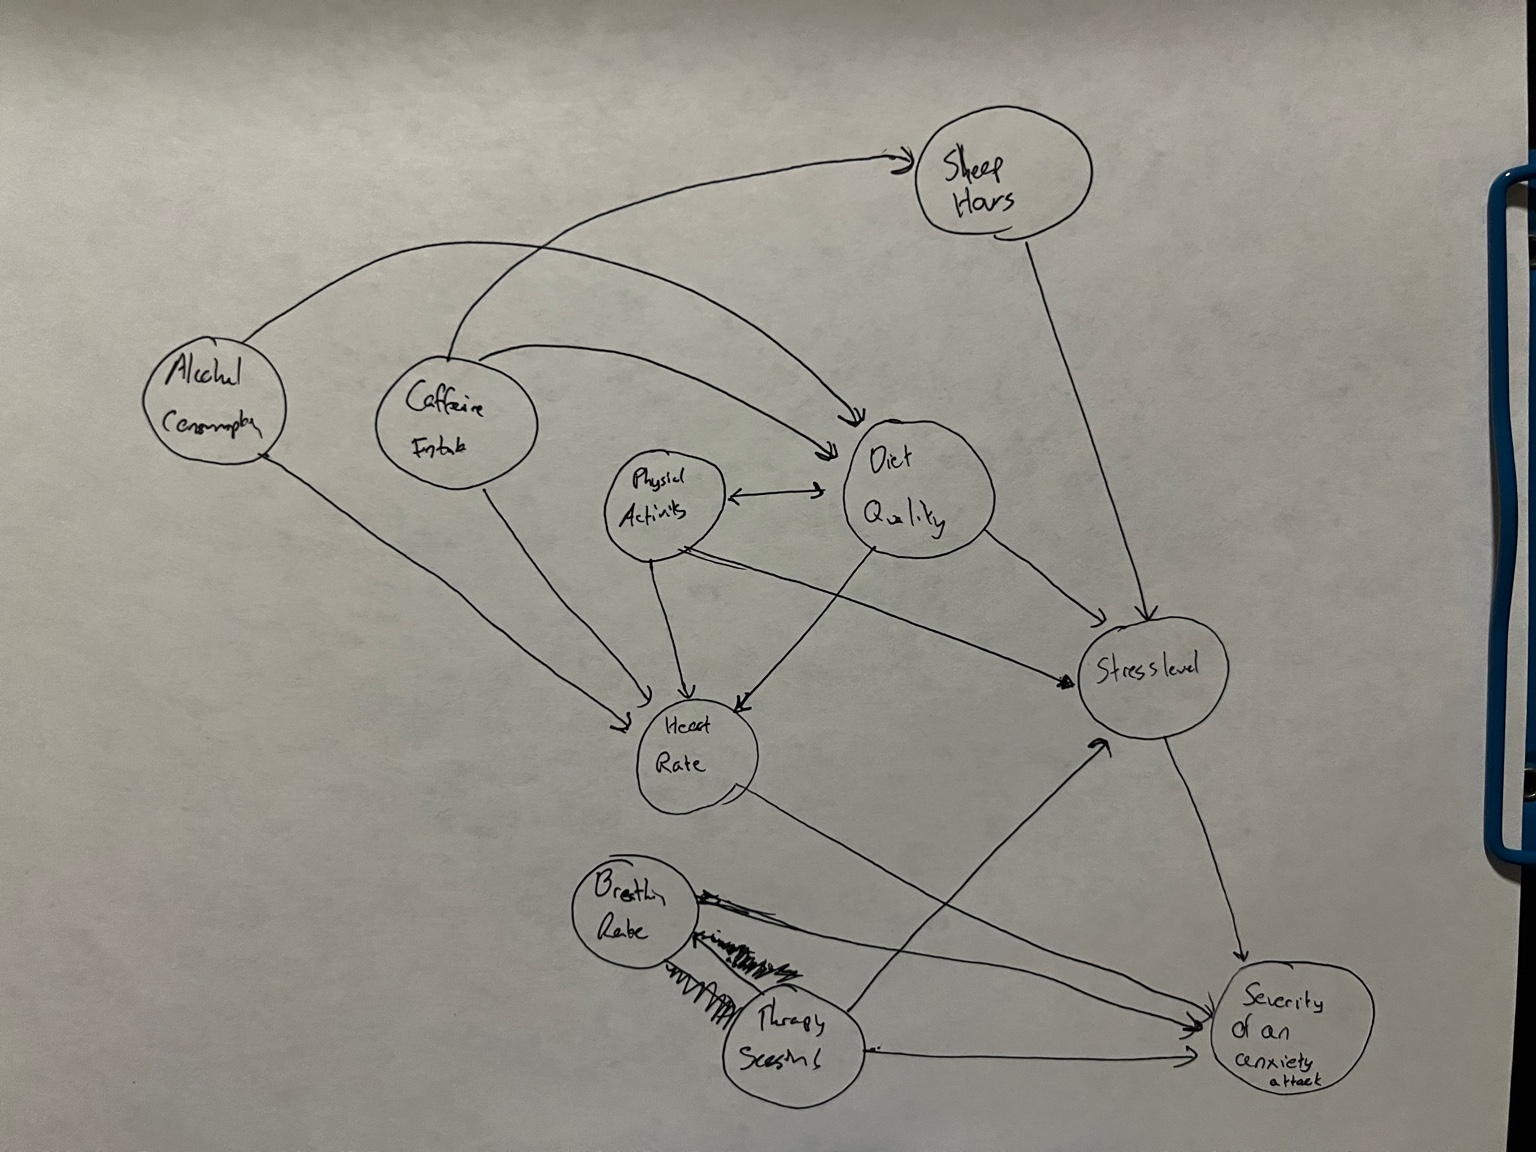 Sleep
Hours
Alcohol
Consumption
Caffeine
Intak
Physical
Activity
Diet
Quality
Stress level
Heart
Rate
Breathing
Rate
Therapy
Sessions
Severity
of an
anxiety
attack